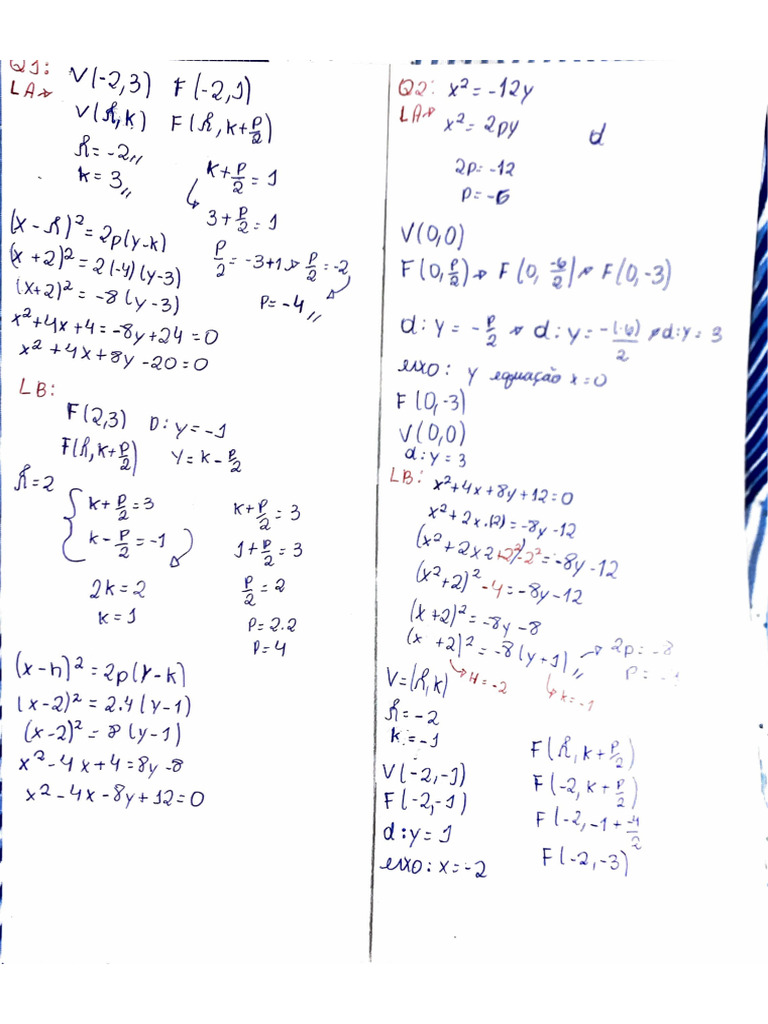 Q1:
LA→ V(-2,3) F(-2,1)
V(h,k) F(h, k+p/2)
h=-2,,
k=3,,
k+p/2=1
3+p/2=1
p/2=-3+1 → p/2=-2
p=-4,,
(x-h)²=2p(y-k)
(x+2)²=2(-4)(y-3)
(x+2)²=-8(y-3)
x²+4x+4=-8y+24=0
x²+4x+8y-20=0
LB:
F(2,3) D:y=-1
F(h,k+p/2) y=k-p/2
h=2
k+p/2=3
k-p/2=-1
2k=2
k=1
k+p/2=3
1+p/2=3
p/2=2
p=2.2
p=4
(x-h)²=2p(y-k)
(x-2)²=2.4(y-1)
(x-2)²=8(y-1)
x²-4x+4=8y-8
x²-4x-8y+12=0
Q2: x²=-12y
LA→ x²=2py d
2p=-12
p=-6
V(0,0)
F(0,p/2)→ F(0,-6/2)→ F(0,-3)
d:y=-p/2 → d:y=-(-6)/2 → d:y=3
eixo: y equação x=0
F(0,-3)
V(0,0)
d:y=3
LB: x²+4x+8y+12=0
x²+2x.(2)=-8y-12
(x²+2x2+2²)-2²=-8y-12
(x²+2)²-4=-8y-12
(x+2)²=-8y-8
(x+2)²=-8(y+1),, → 2p=-8
H=-2 k=-1
V=(h,k)
h=-2
k=-1
V(-2,-1)
F(-2,-1)
d:y=1
eixo:x=-2
F(h,k+p/2)
F(-2,k+p/2)
F(-2,-1+-4/2
F(-2,-3)